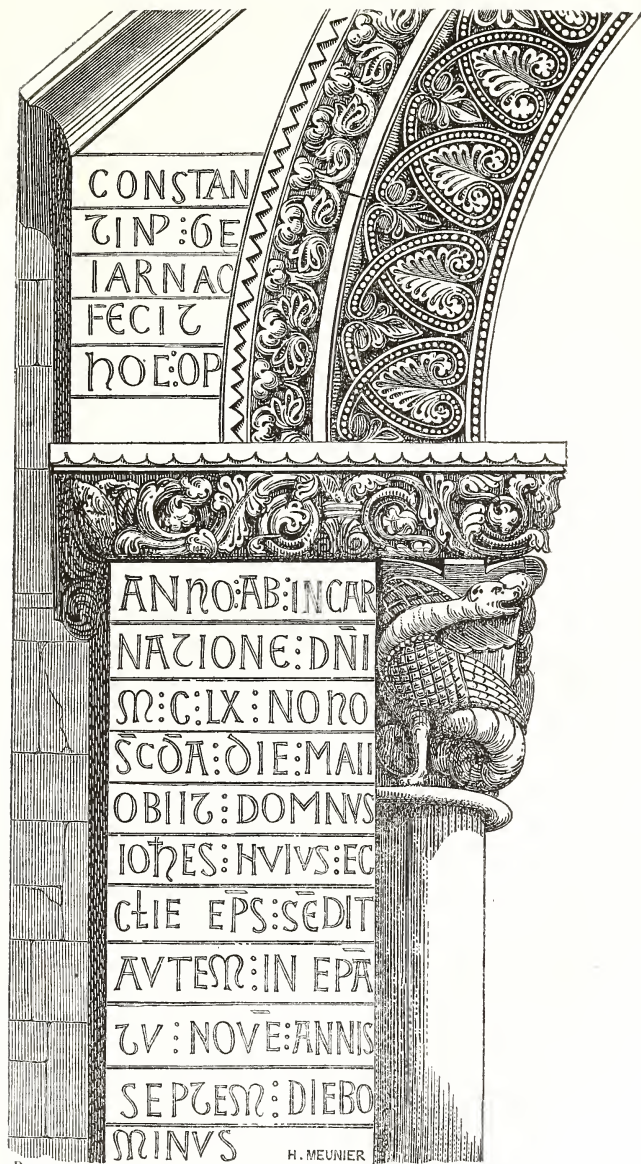 CONSTAN
TINꝰ : DE
IARNAC
FECIT
hOC : OP
ĀNhO : AB : IN CAR
NATIONE : DN̄I
M : C : LX : NOhO
S̄CD̄A : DIE : MAII
OBIIT : DOMNVS
IOĦES : HVIVS : EC
CŁIE EP̄S : SĒDIT
AVTEM : IN EPĀ
TV : NOVĒ : ANNIS
SEPTEM : DIEBO
MINVS
H. MEUNIER